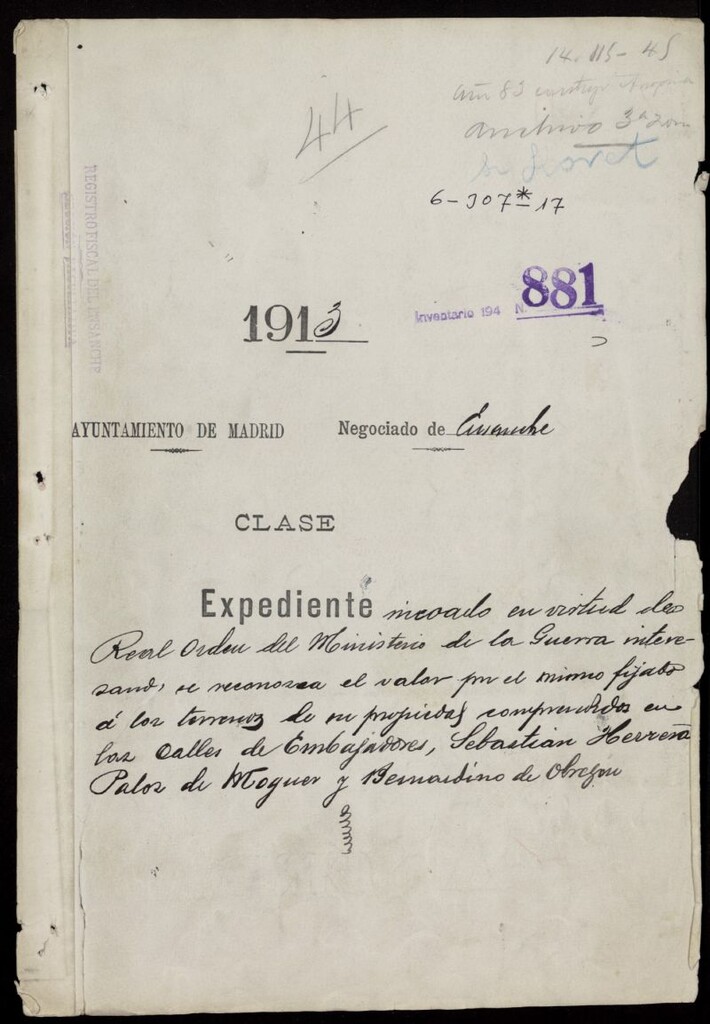 14. 115 - 45
archivo 3ª
44
6-307*17
REGISTRO FISCAL DEL ENSANCHE
1913
Inventario 194 N. 881
AYUNTAMIENTO DE MADRID Negociado de Ensanche
CLASE
Expediente incoado en virtud de
Real Orden del Ministerio de la Guerra intere-
sando se reconozca el valor por el mismo fijado
á los terrenos de su propiedad comprendidos en
las calles de Embajadores, Sebastian Herrera
Palos de Moguer y Bernardino de Obregon